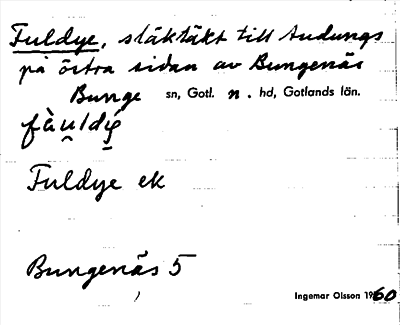 Fuldye, släktäkt till Audungs
på östra sidan av Bungenäs
Bunge sn, Gotl. n. hd, Gotlands län.
fàu̯ldý̱
Fuldye ek
Bungenäs 5
Ingemar Olsson 1960